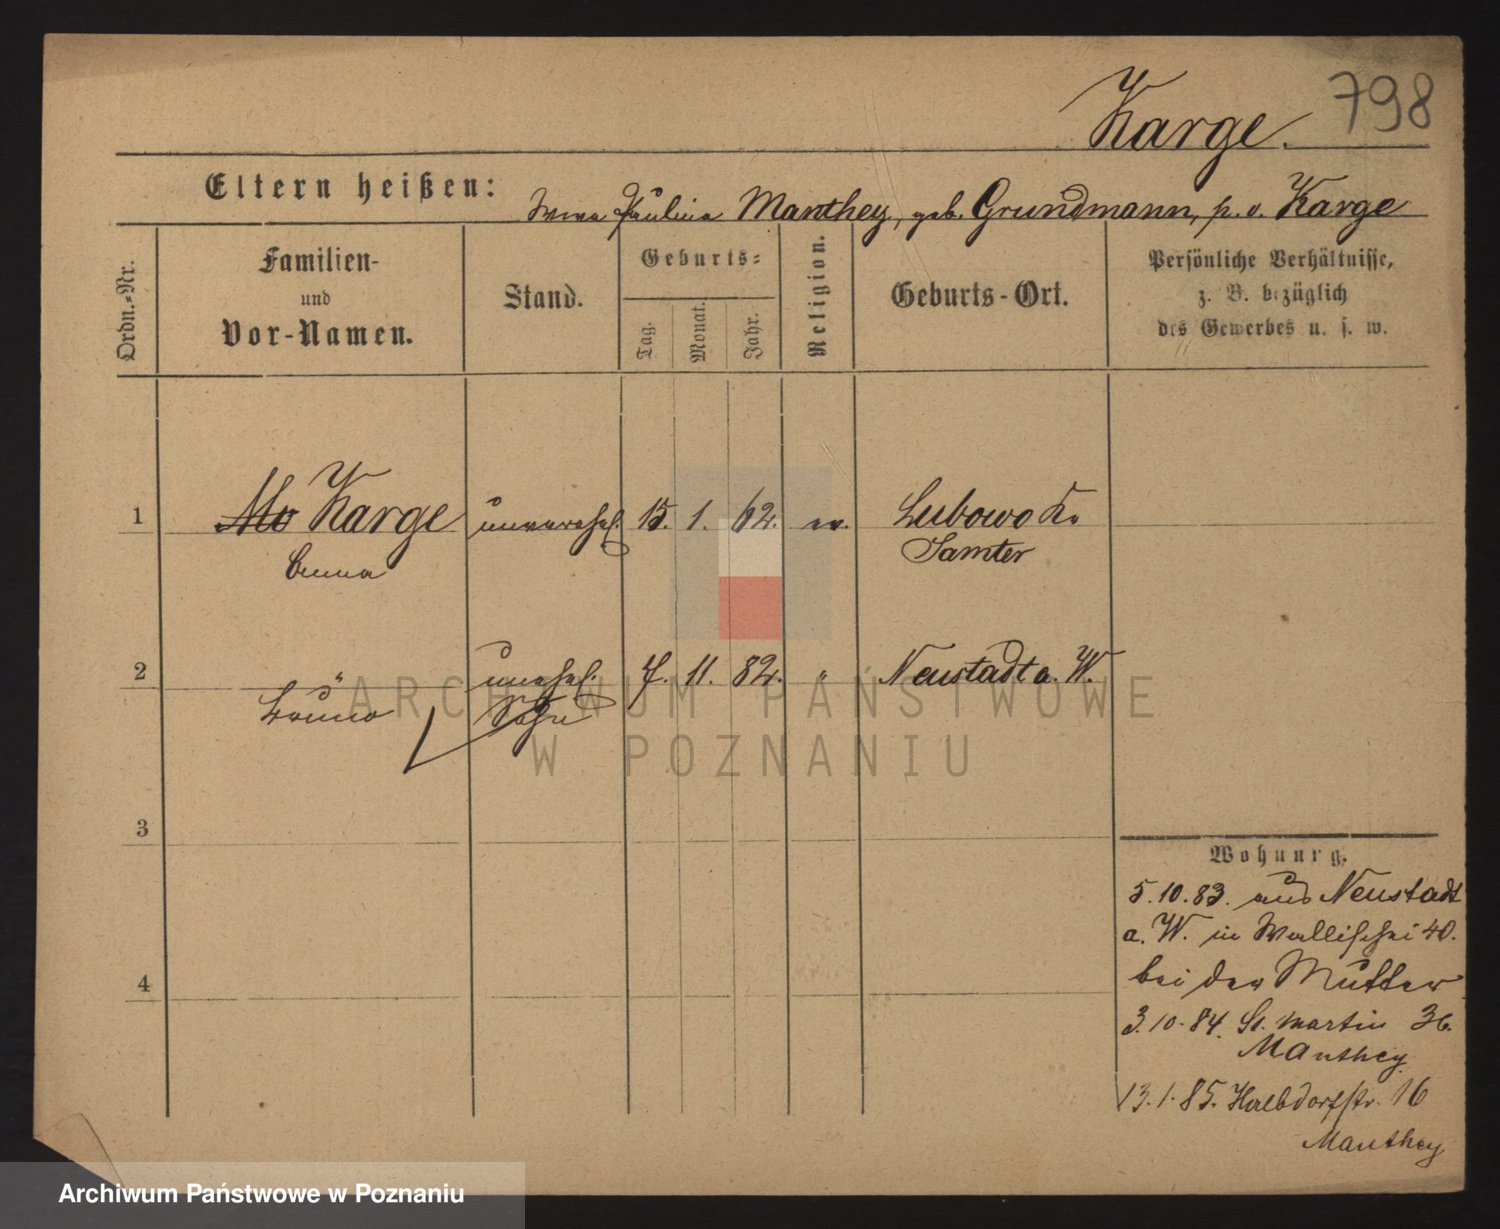 Karge. 798
Eltern heißen: Wwe Pauline Manthey, geb. Grundmann, p. v. Karge
Ordn.-Nr.
Familien-
und
Vor-Namen.
Stand.
Geburts-
Tag.
Monat.
Jahr.
Religion.
Geburts-Ort.
Persönliche Verhältnisse,
z. B. bezüglich
des Gewerbes u. s. w.
1 Karge unverehel. 15. 1. 62. ev. Lubowo Kr.
Anna Samter
2 " unehel. 7. 11. 82. " Neustadt a. W.
Bruno Sohn
3
4
Wohnung.
5.10.83. aus Neustadt
a. W. in Wallischei 40.
bei der Mutter
3.10.84. St. Martin 36.
Manthey
13.1.85. Halbdorfstr. 16
Manthey
ARCHIWUM PAŃSTWOWE
W POZNANIU
Archiwum Państwowe w Poznaniu